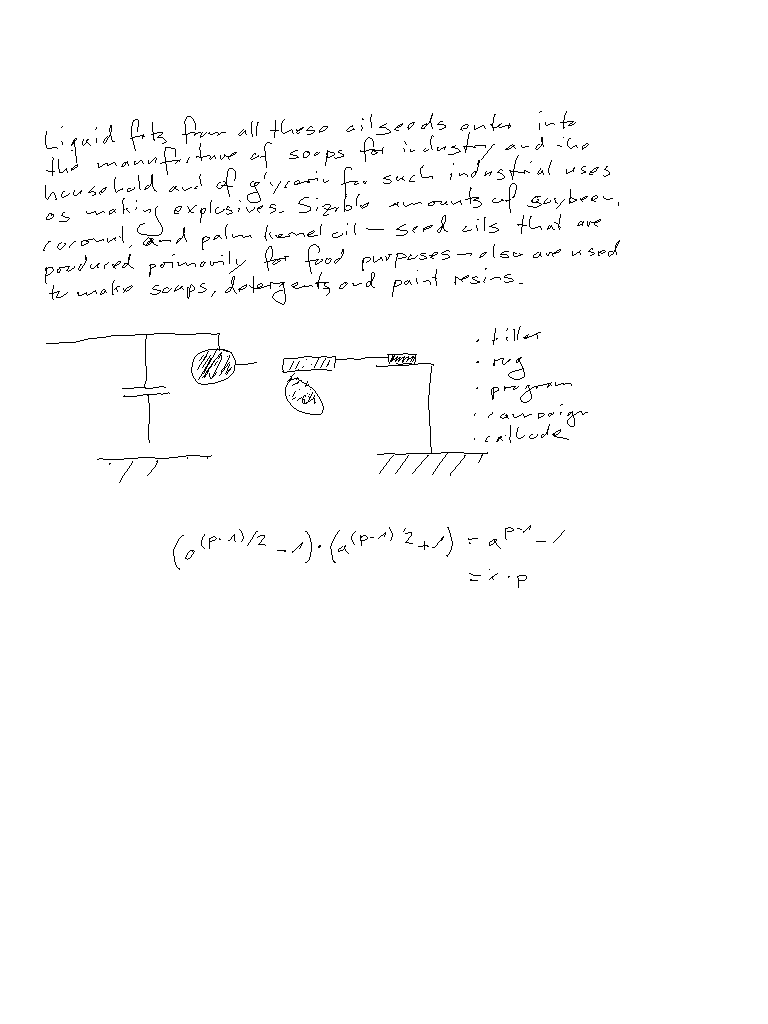 Liquid fats from all these oilseeds enter into
the manufacture of soaps for industry and the
household and of glycerin for such industrial uses
as making explosives. Sizable amounts of soybean,
coconut, and palm kernel oil — seed oils that are
produced primarily for food purposes — also are used
to make soaps, detergents, and paint resins.
• tiller
• rug
• program
• campaign
• cathode
(a^(p-1)/2 - 1) · (a^(p-1)/2 + 1) = a^p-1 - 1
= x · p